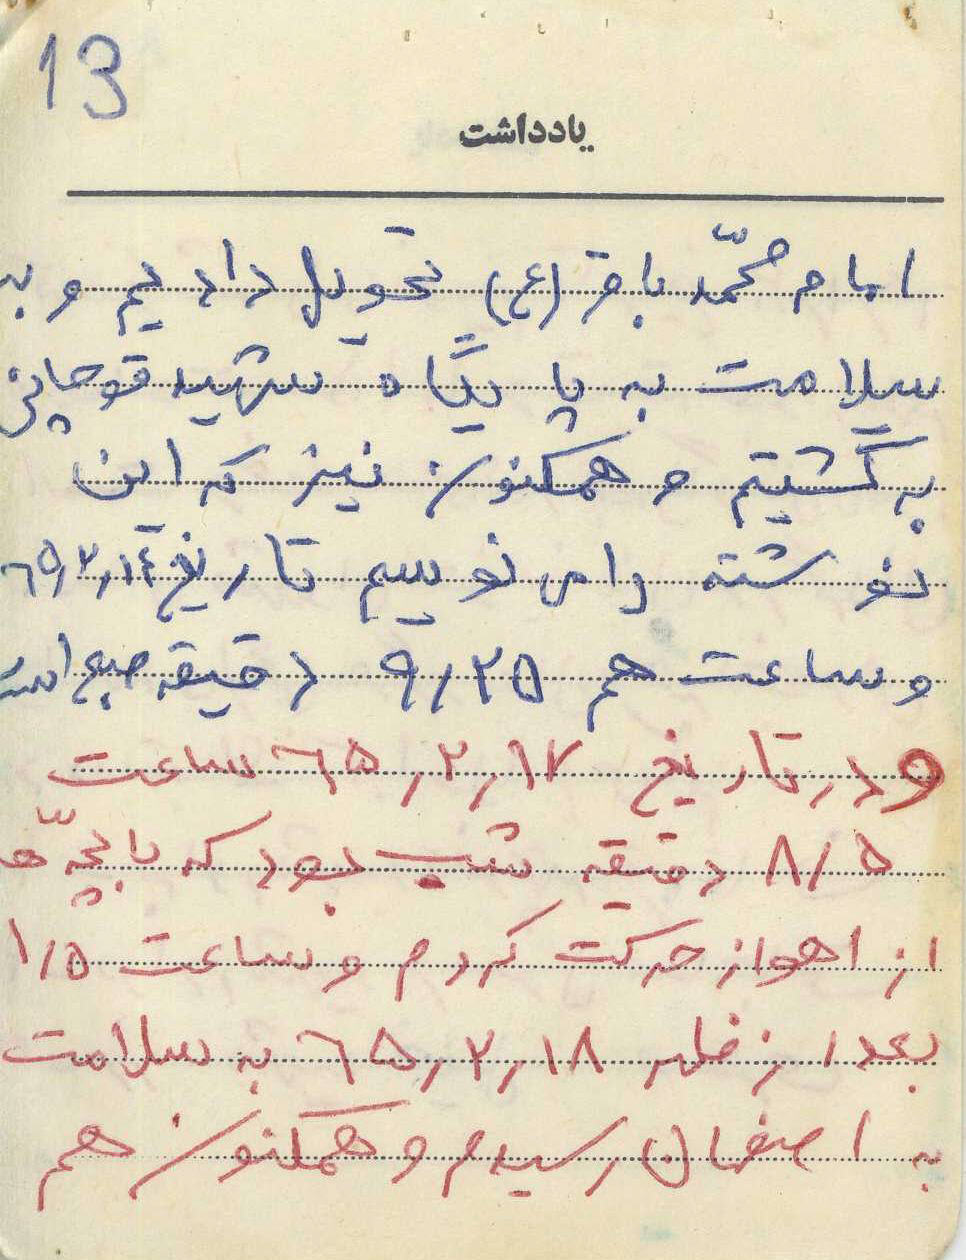 13
یادداشت
امام محمّد باقر (ع) تحویل دادیم و به
سلامت به پایگاه شهید قوچانی
برگشتیم و همکنون نیز که این
نوشته را می نویسم تاریخ ٦٥/٢/١٤
و ساعت هم ٩/٢٥ دقیقه صبح است
و در تاریخ ٦٥/٢/١٧ ساعت
٨/٥ دقیقه شب بود که با بچّه ها
از اهواز حرکت کردم و ساعت ١/٥
بعد از ظهر ٦٥/٢/١٨ به سلامت
به اصفهان رسیدم و همکنون هم